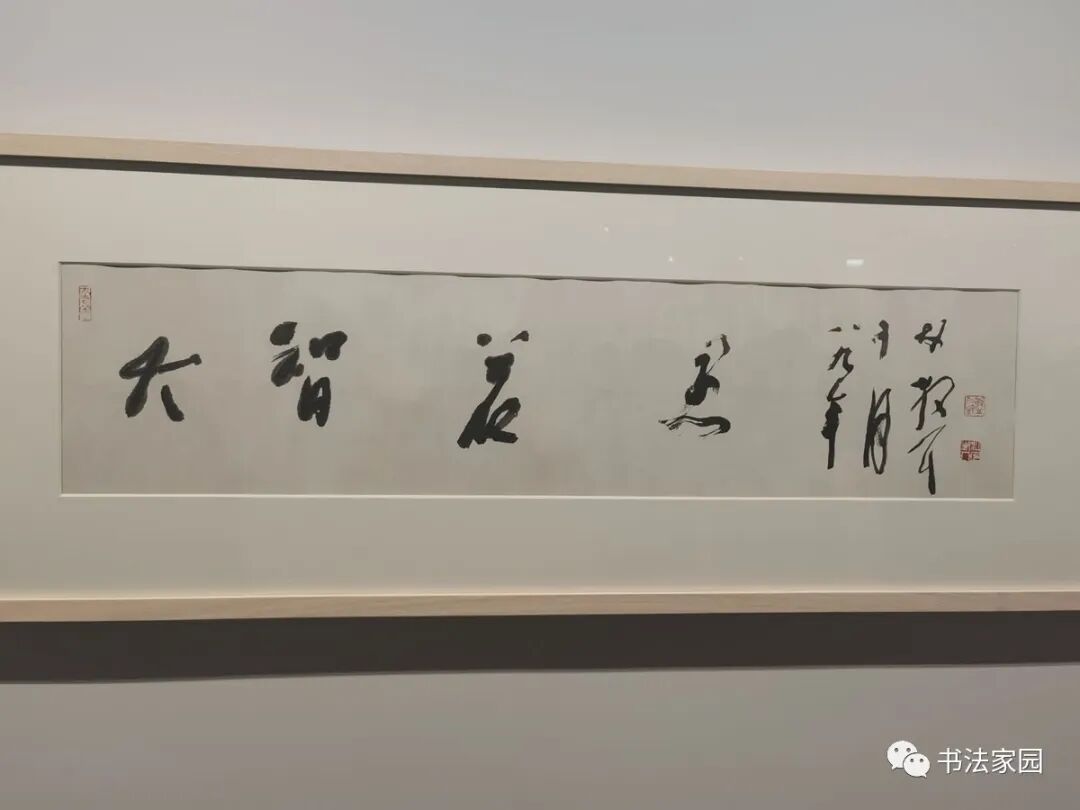 大智若愚
八九年
十月
林散耳
书法家园